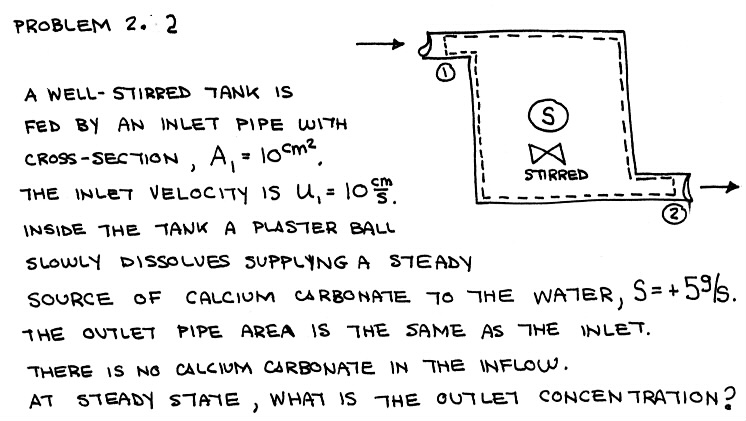 PROBLEM 2. 2
①
A WELL-STIRRED TANK IS
FED BY AN INLET PIPE WITH
CROSS-SECTION, A₁ = 10 cm².
THE INLET VELOCITY IS U₁ = 10 cm/s.
S
STIRRED
②
INSIDE THE TANK A PLASTER BALL
SLOWLY DISSOLVES SUPPLYNG A STEADY
SOURCE OF CALCIUM CARBONATE TO THE WATER, S = +5 g/s.
THE OUTLET PIPE AREA IS THE SAME AS THE INLET.
THERE IS NO CALCIUM CARBONATE IN THE INFLOW.
AT STEADY STATE, WHAT IS THE OUTLET CONCENTRATION?